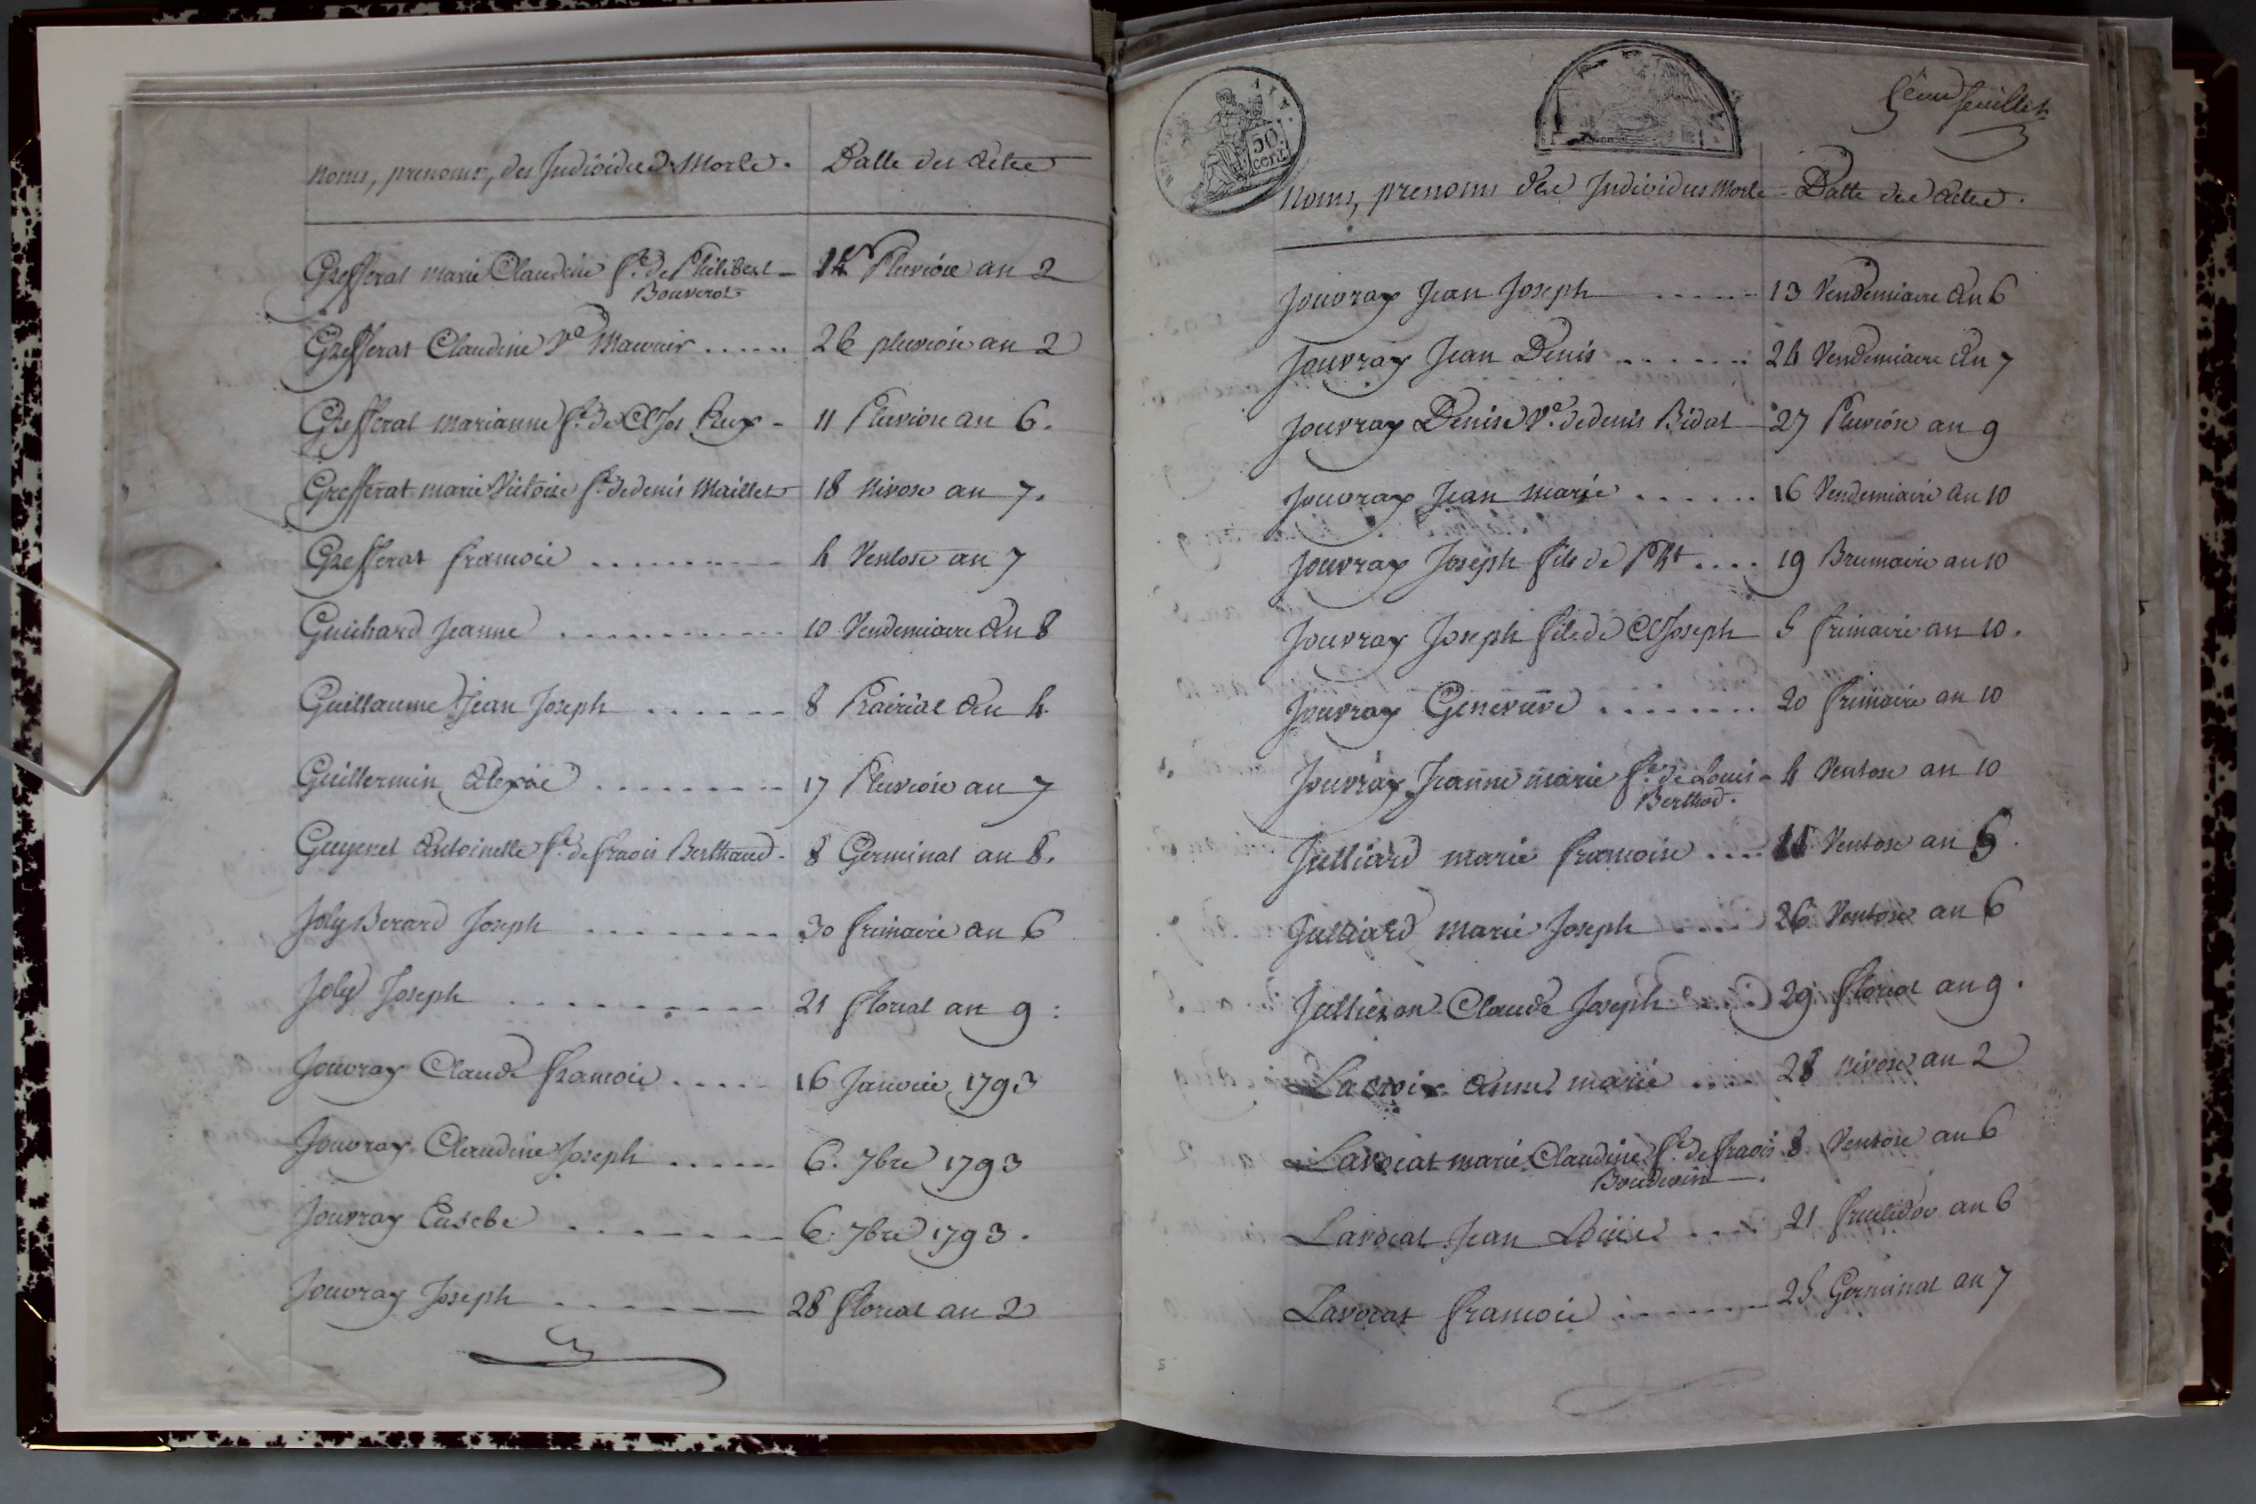 noms, prenoms, des Individus Morts. Datte des Actes
Grefferat marie Claudine fe. de Philibert 14 Pluviôse an 2
Bouverot
Grefferat Claudine Ve Mauvair ...... 26 pluviôse an 2
Grefferat marianne fe. de Cl Jos Puex - 11 Pluviose an 6.
Grefferat marie Victoire fe. de denis Maillet 18 Nivose an 7.
Grefferat francois .......... 4 Ventose an 7
Guichard Jeanne .......... 10 Vendemiaire An 8
Guillaume Jean Joseph ...... 8 Prairial An 4
Guillermin Alexis ......... 17 Pluviose an 7
Guyenet Antoinette fe. de fraois Berthaud - 8 Germinal an 8.
Joly Berard Joseph ......... 30 frimaire an 6
Joly Joseph .......... 21 floreal an 9 :
Jouvray Claude francois ..... 16 Janvier 1793
Jouvray Claudine Joseph ...... 6. 7bre 1793
Jouvray Eusebe ....... 6. 7bre 1793.
Jouvray Joseph ....... 28 floreal an 2
50
cent.
5eme feuillet
Noms, prenoms des Individus Morts - Datte des Actes.
Jouvray Jean Joseph ...... 13 Vendemiaire An 6
Jouvray Jean Denis ....... 24 Vendemiaire An 7
Jouvray Denise Ve. de denis Bidal 27 Pluviôse an 9
Jouvray Jean marie ...... 16 Vendemiaire An 10
Jouvray Joseph fils de Pht .... 19 Brumaire an 10
Jouvray Joseph fils de Cl Joseph 5 frimaire an 10.
Jouvray Genevieve ........ 20 frimaire an 10
Jouvray Jeanne marie fe. de Louis - 4 Ventose an 10
Berthod.
Julliard marie francoise .... 11 Ventose an 5.
Julliard marie Joseph .... 26 Ventose an 6
Jullieron Claude Joseph 29 floreal an 9.
Lacroix Anne marie ... 28 nivose an 2
Lavocat marie Claudine fe. de fraois 8 Ventose an 6
Boudvoin
Lavocat Jean Louis .... 21 fructidor an 6
Lavocat francois ....... 25 Germinal an 7
5